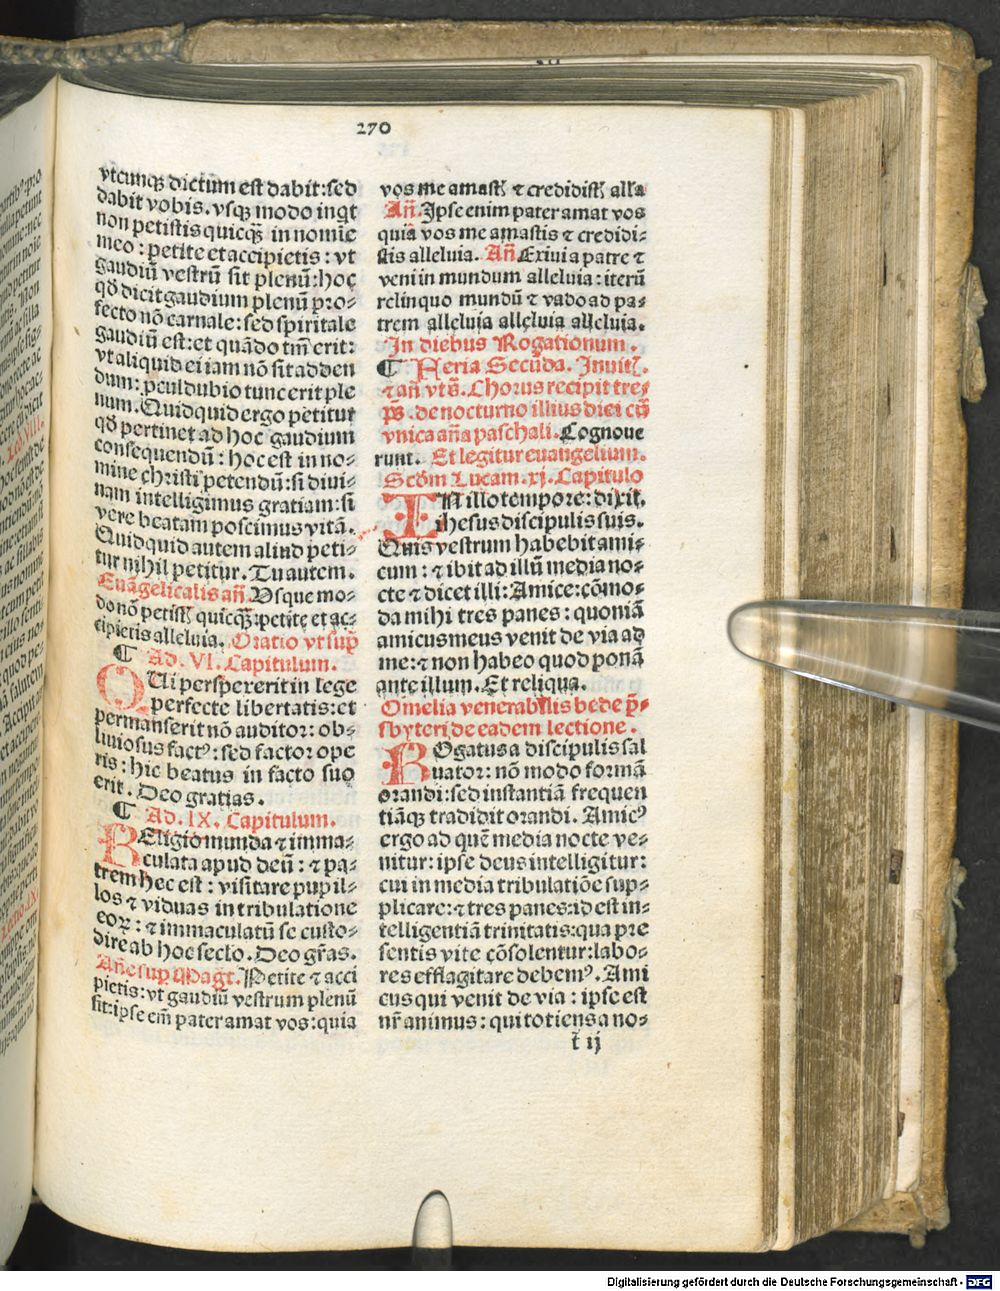 270
vtcunqꝫ dictum est dabit: sed
dabit vobis. vsqꝫ modo inqt
non petistis quicqꝫ in nomie
meo: petite et accipietis: vt
gaudiū vestrū sit plenū: hoc
qđ dicit gaudium plenū pro⸗
fecto nō carnale: sed spiritale
gaudiū est: et quādo tm̄ erit:
vt aliquid ei iam nō sit adden
dum: ꝓculdubio tunc erit ple
num. Quidquid ergo petitur
qđ pertinet ad hoc gaudium
consequendū: hoc est in no⸗
mine christi petendū: si divi⸗
nam intelligimus gratiam: si
vere beatam poscimus vitā.
Quidquid autem aliud peti⸗
tur nihil petitur. Tu autem.
Euāgelicalis an̄. Vsque mo⸗
do nō petistꝭ quicqꝫ: petite et ac⸗
cipietis alleluia. Oratio vt sup̄
¶ Ad. VI. Capitulum.
QUi perspererit in lege
perfecte libertatis: et
permanserit nō auditor: ob⸗
liuiosus factꝰ: sed factor ope
ris: hic beatus in facto suo
erit. Deo gratias.
¶ Ad. IX. Capitulum.
REligio munda ⁊ imma⸗
culata apud deū: ⁊ pa⸗
trem hec est: visitare pupil⸗
los ⁊ viduas in tribulatione
eoꝝ: ⁊ immaculatū se custo⸗
dire ab hoc seclo. Deo gr̄as.
An̄e sup Magt. Petite ⁊ acci
pietis: vt gaudiū vestrum plenū
sit: ipse em̄ pater amat vos: quia
vos me amastꝭ ⁊ credidistꝭ all'a
An̄. Ipse enim pater amat vos
quia vos me amastis ⁊ credidi⸗
stis alleluia. An̄. Exiui a patre ⁊
veni in mundum alleluia: iterū
relinquo mundū ⁊ vado ad pa⸗
trem alleluia alleluia alleluia.
In diebus Rogationum.
¶ Feria Secūda. Inuitꝭ.
⁊ an̄ vts̄. Chorus recipit tre⸗
ps̄. de nocturno illius diei cū
vnica an̄a paschali. Cognoue
runt. Et legitur euangelium.
Scd̄m Lucam. xj. Capitulo
IN illo tempore: dixit.
ihesus discipulis suis.
Quis vestrum habebit ami⸗
cum: ⁊ ibit ad illū media no⸗
cte ⁊ dicet illi: Amice: cōmo⸗
da mihi tres panes: quoniā
amicus meus venit de via ad
me: ⁊ non habeo quod ponā
ante illum. Et reliqua.
Omelia venerabilis bede p̄⸗
sbyteri de eadem lectione.
ROgatus a discipulis sal
uator: nō modo formā
orandi: sed instantiā frequen
tiāqꝫ tradidit orandi. Amicꝰ
ergo ad quē media nocte ve⸗
nitur: ipse deus intelligitur:
cui in media tribulatiōe sup⸗
plicare: ⁊ tres panes: id est in⸗
telligentiā trinitatis: qua pre
sentis vite cōsolentur: labo⸗
res efflagitare debemꝰ. Ami
cus qui venit de via: ipse est
nr̄ animus: qui totiens a no⸗
t ij
Digitalisierung gefördert durch die Deutsche Forschungsgemeinschaft - DFG